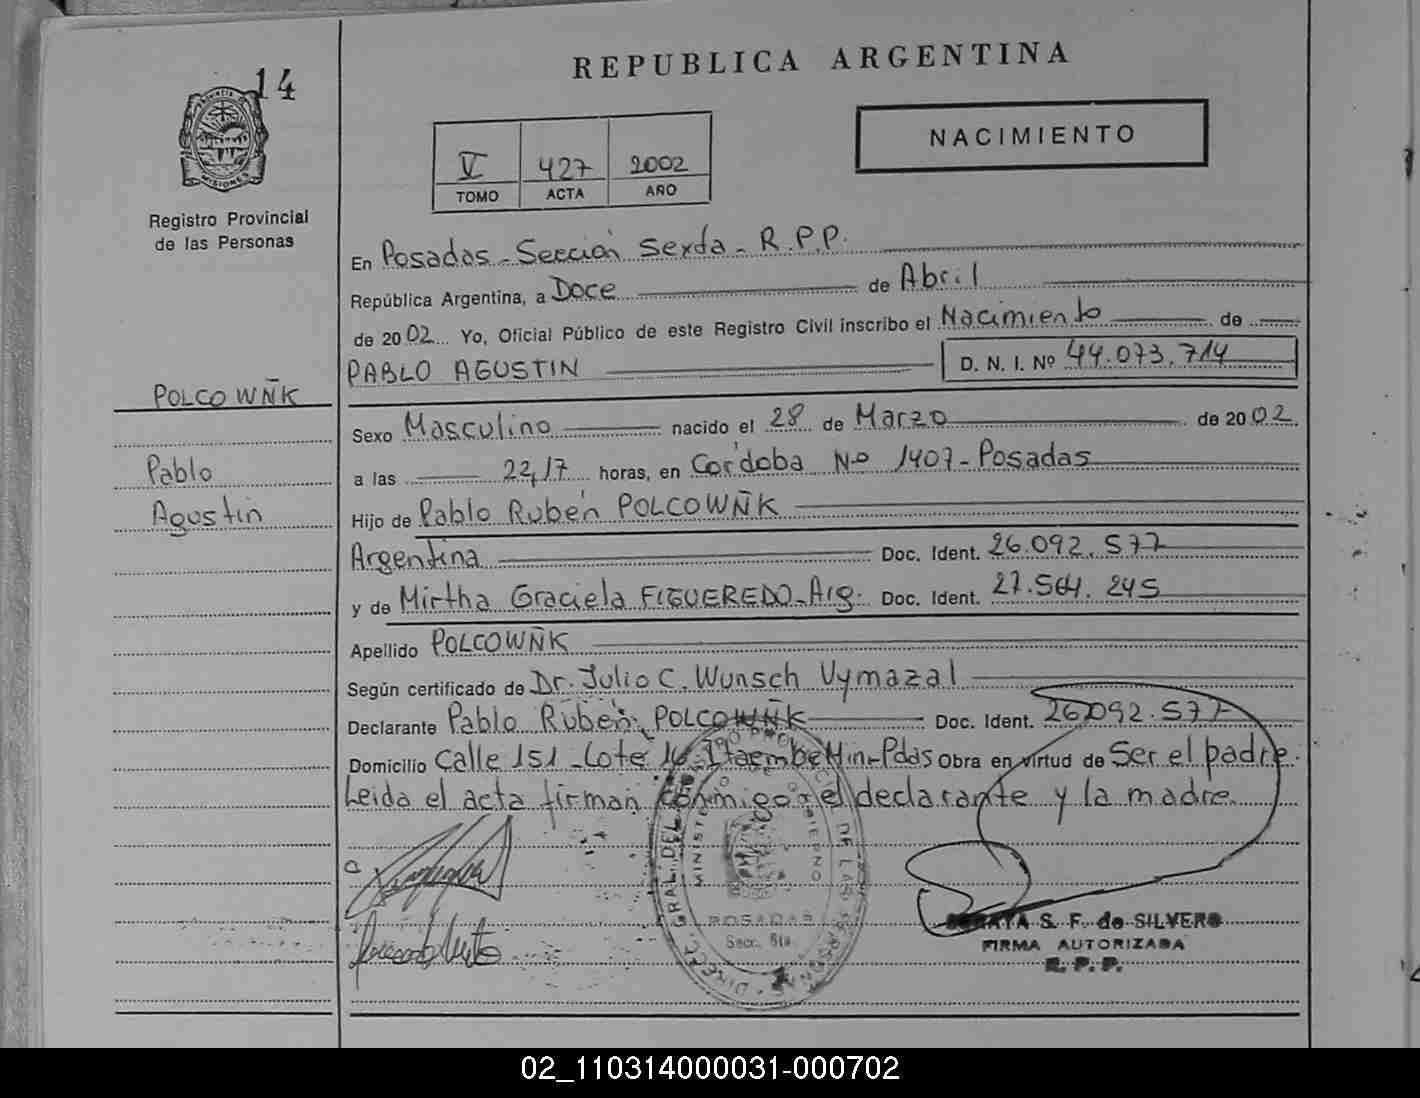 14
REPUBLICA ARGENTINA
NACIMIENTO
V 427 2002
TOMO ACTA AÑO
PROVINCIA DE
MISIONES
Registro Provincial
de las Personas
En Posadas - Sección Sexta - R.P.P.
República Argentina, a Doce de Abril
de 2002 Yo, Oficial Público de este Registro Civil inscribo el Nacimiento de
PABLO AGUSTIN D. N. I. Nº 44.073.714
POLCOWÑK
Pablo
Agustín
Sexo Masculino nacido el 28 de Marzo de 2002
a las 22,17 horas, en Córdoba Nº 1407 - Posadas
Hijo de Pablo Rubén POLCOWÑK
Argentina Doc. Ident. 26.092.577
y de Mirtha Graciela FIGUEREDO - Arg. Doc. Ident. 27.564.245
Apellido POLCOWÑK
Según certificado de Dr. Julio C. Wunsch Vymazal
Declarante Pablo Rubén POLCOWÑK Doc. Ident. 26.092.577
Domicilio Calle 151 - Lote 16 - Itaembé Miní - Pdas Obra en virtud de Ser el padre.
Leida el acta firman conmigo el declarante y la madre.
MINISTERIO DE GOBIERNO
POSADAS
Secc. 6ta
SORAYA S. F. de SILVERO
FIRMA AUTORIZADA
R. P. P.
02_110314000031-000702